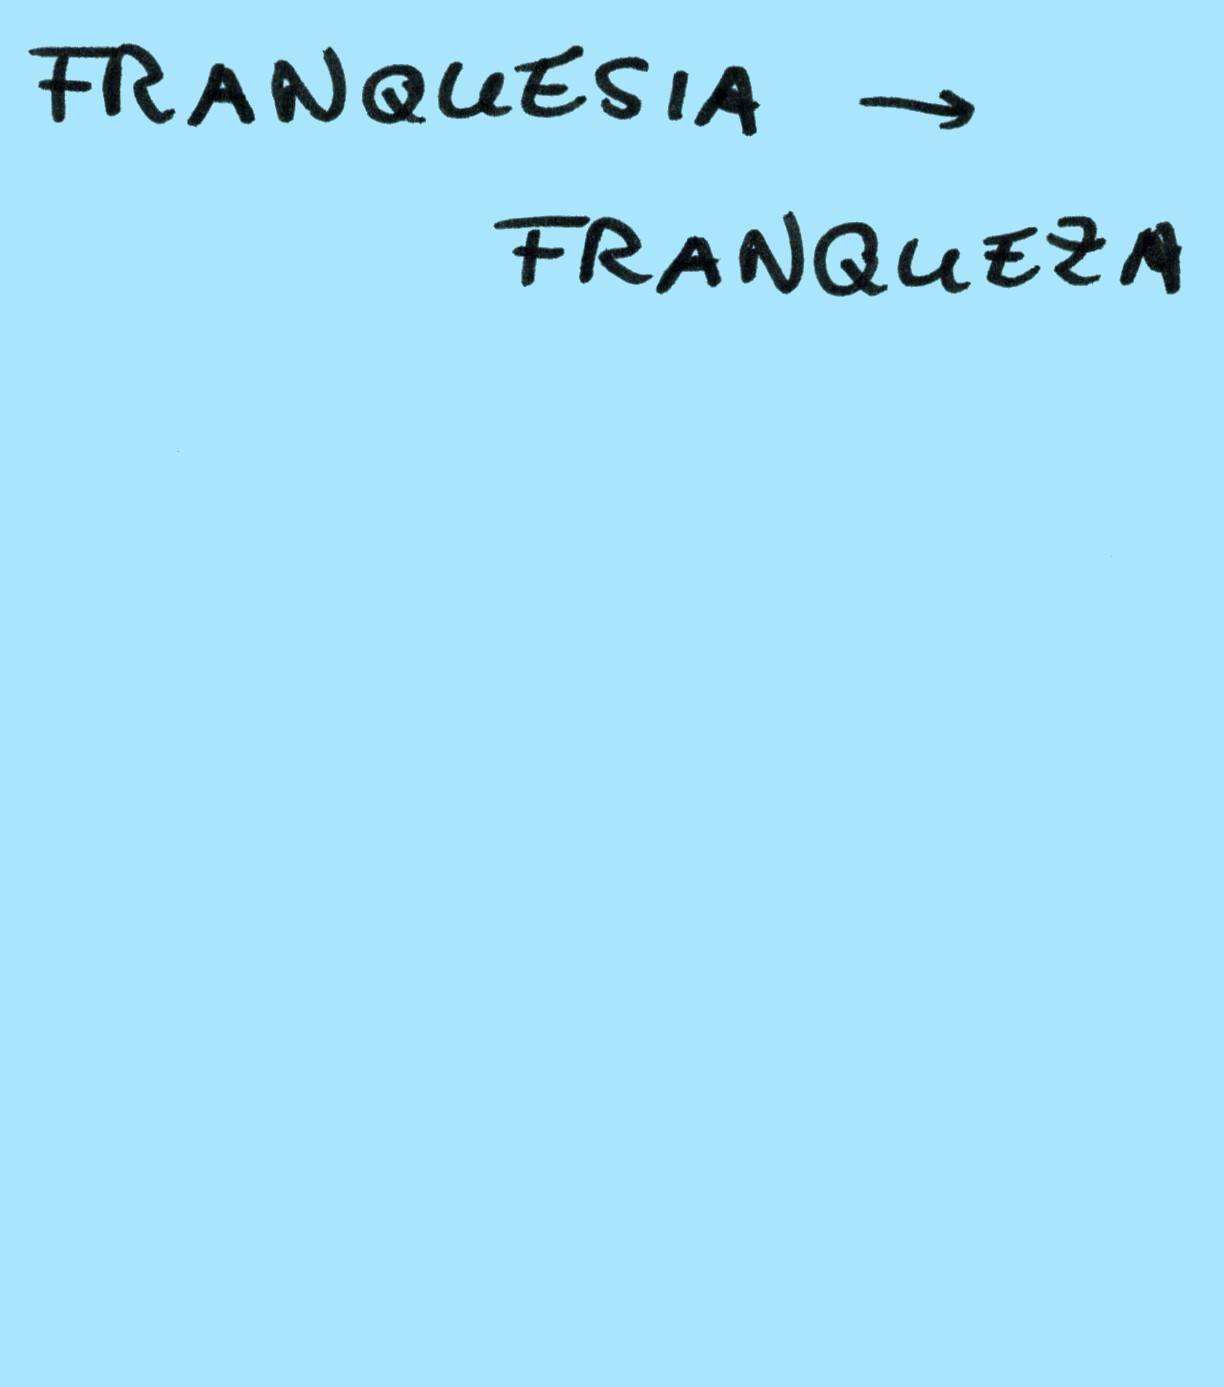 FRANQUESIA →
FRANQUEZA